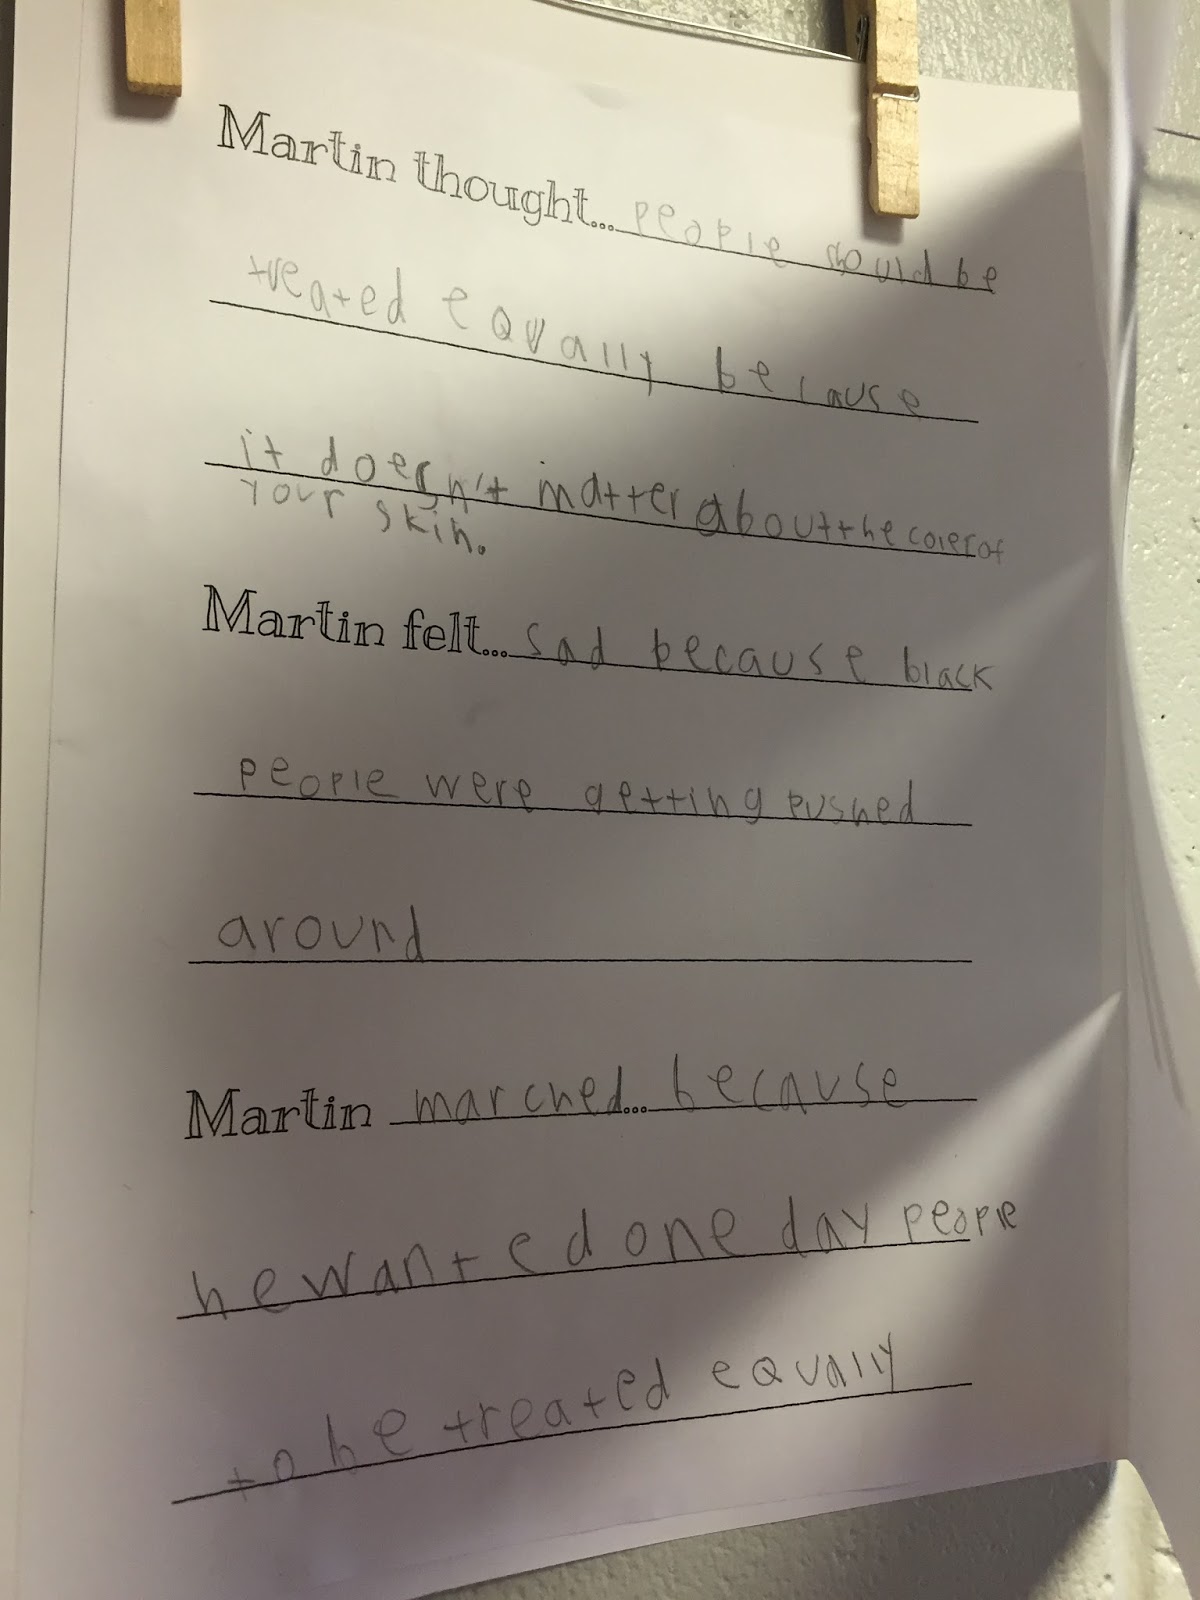 Martin thought... people should be
treated equally because
it doesn't matter about the coler of
your skin.
Martin felt... sad because black
people were getting pushed
around
Martin marched... because
he wanted one day people
to be treated equally